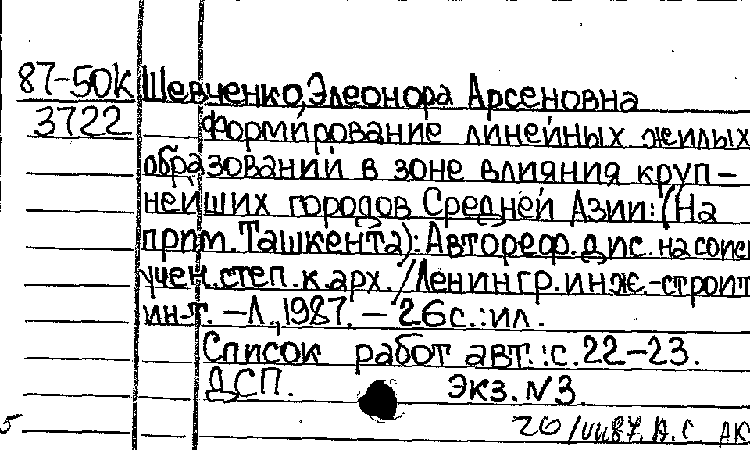 87-50К Шевченко, Элеонора Арсеновна
3722 Формирование линейных жилых
образований в зоне влияния круп-
нейших городов Средней Азии: (На
прим. Ташкента): Автореф. дис. на соиск
учен. степ. к. арх. / Ленингр. инж.-строит
ин-т. – Л., 1987. – 26 с.: ил.
Список работ авт.: с. 22-23.
ДСП. Экз. N 3.